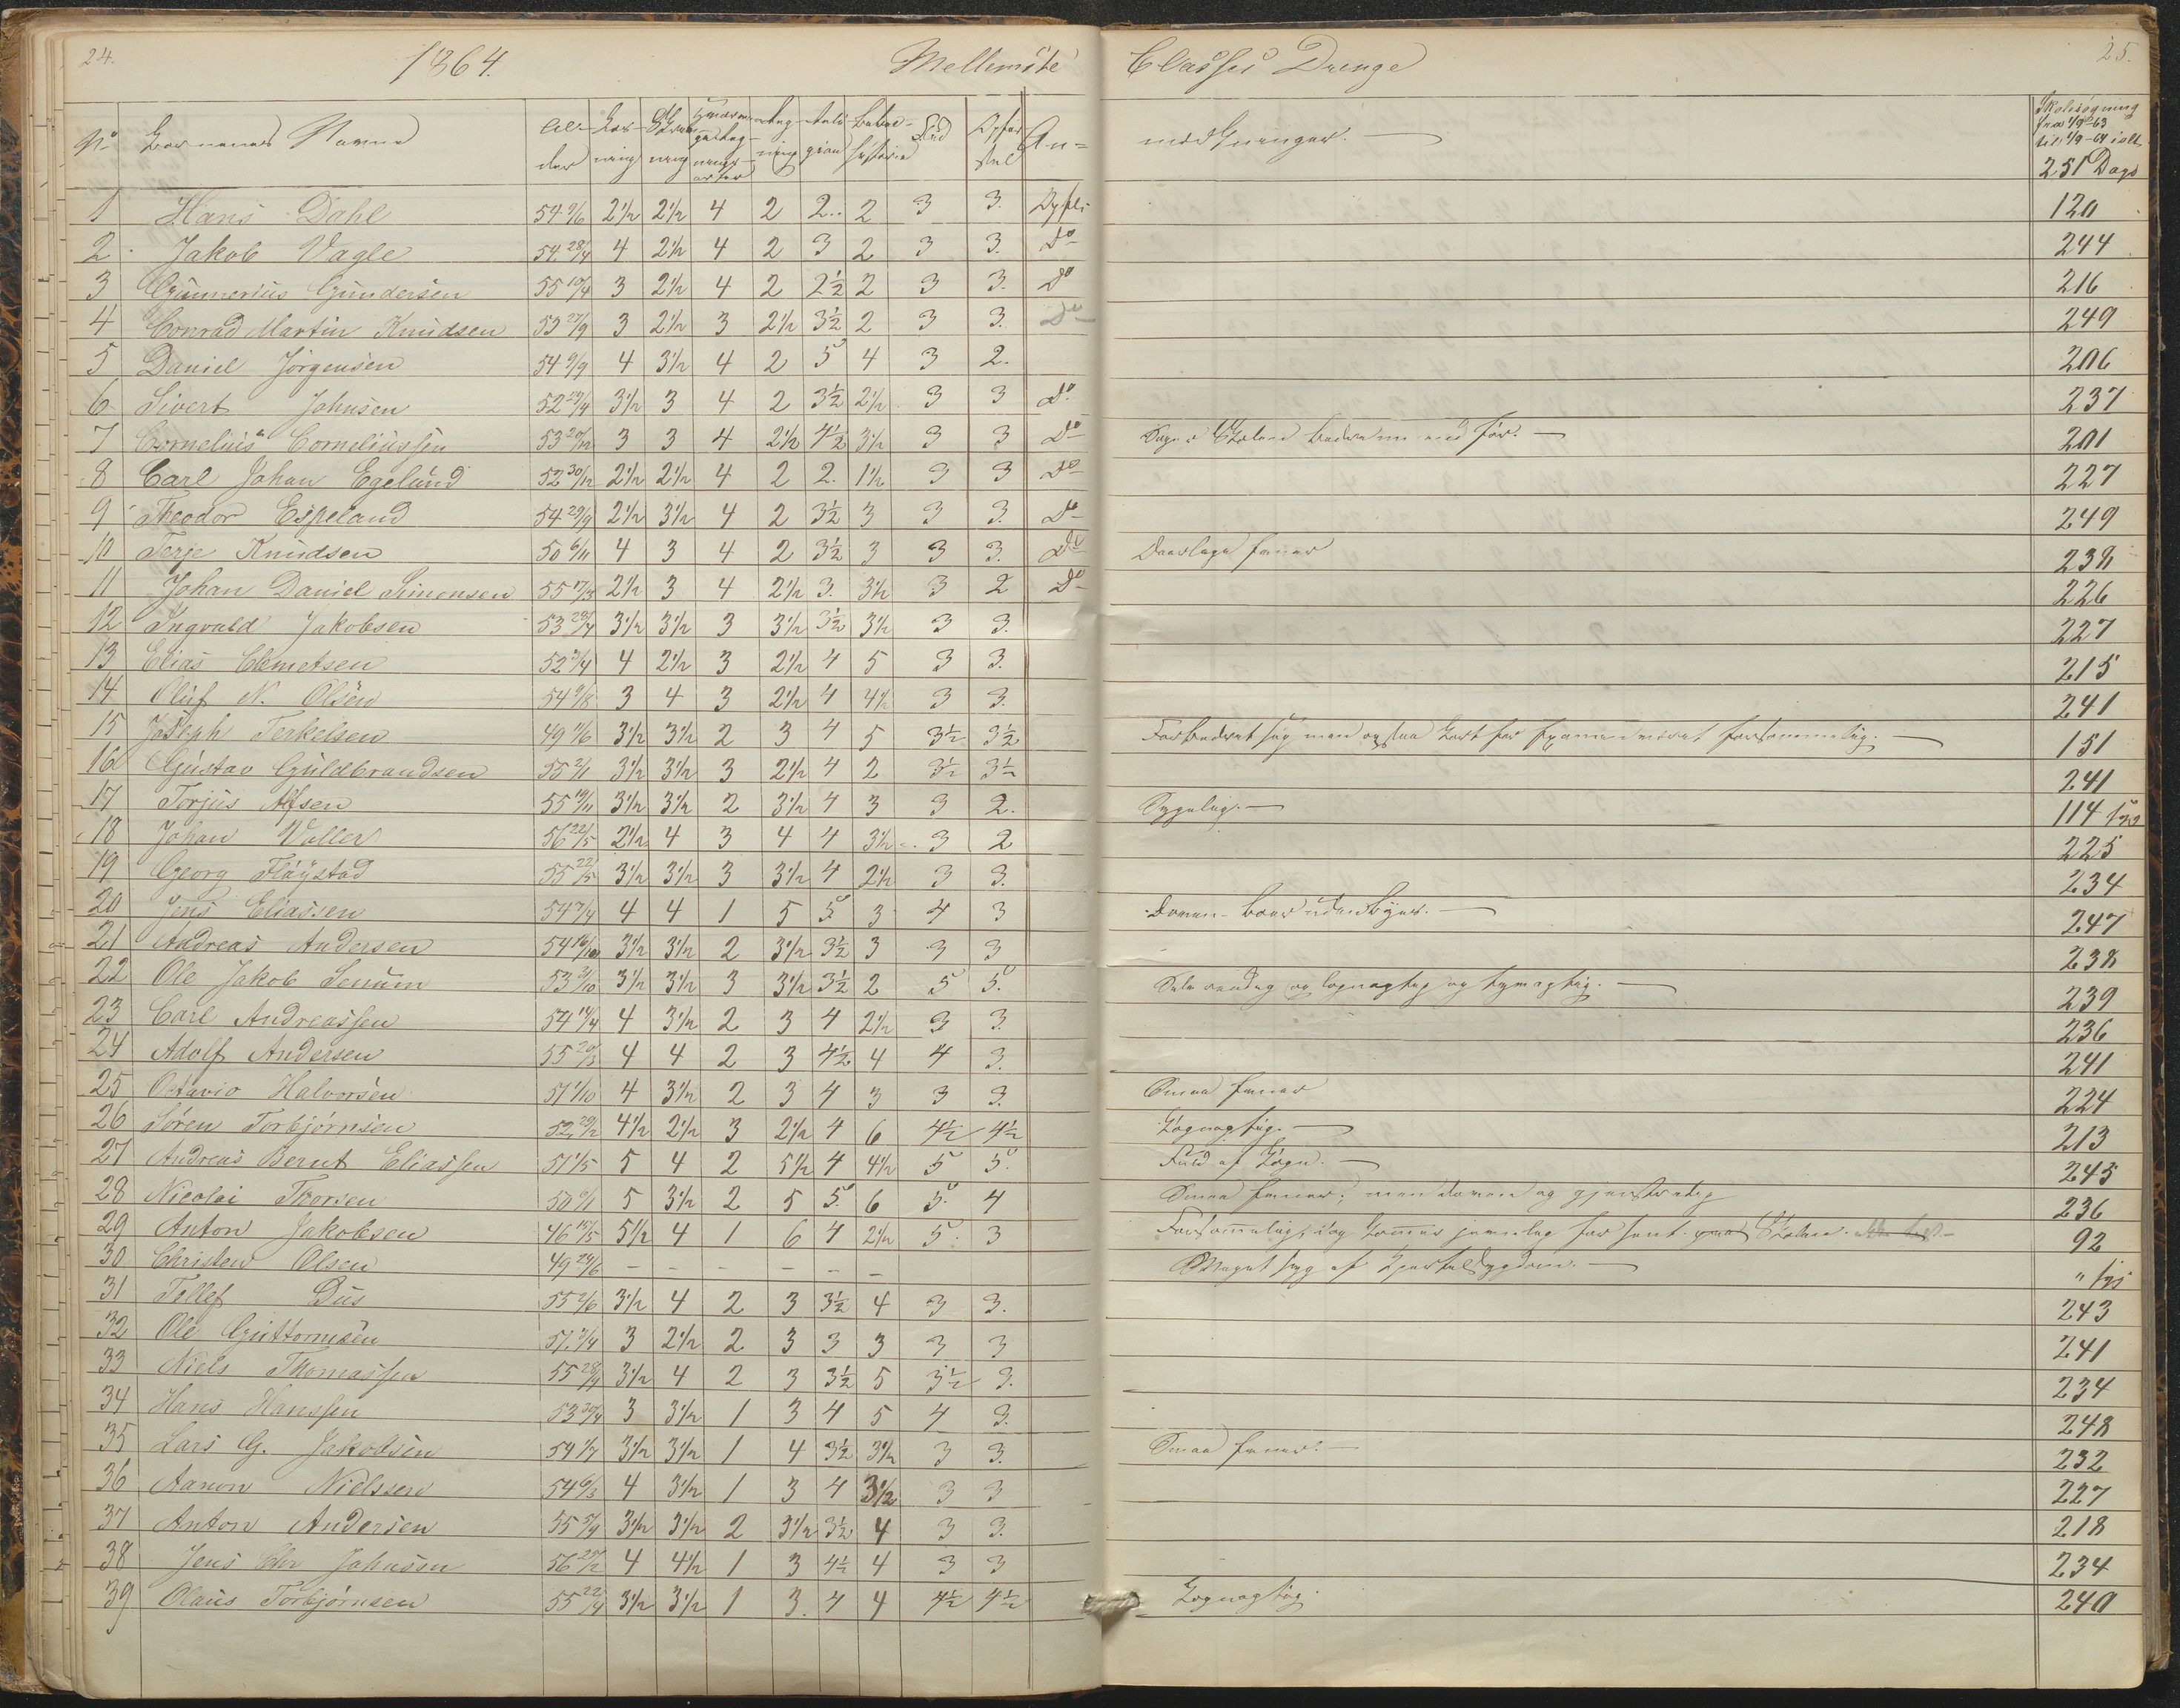 24. 1864. Mellemste Classes Drenge 25.
No Børnenes Navne Alder Læsning Skrivning Regning Religion Bibelhistorie Flid Opførsel Anmærkninger. Skolesøgning fra 1/9-63 til 1/9-64 ialt 251 Dage
1 Hans Dahl 54 9/6 2½ 2½ 4 2 2.. 2 3 3. Opfl. 120
2. Jakob Vagle 54 28/4 4 2½ 4 2 3 2 3 3. Do 244
3 Gunnerius Gundersen 55 10/4 3 2½ 4 2 2½ 2 3 3. Do 216
4 Conrad Martin Knudsen 53 27/9 3 2½ 3 2½ 3½ 2 3 3. Do 249
5 Daniel Jørgensen 54 9/9 4 3½ 4 2 5 4 3 2. 206
6 Sivert Johnsen 52 29/4 3½ 3 4 2 3½ 2½ 3 3 Do 237
7 Cornelius Corneliussen 53 20/12 3 3 4 2½ 4½ 3½ 3 3 Do Søger Skolen bedre nu end før. 201
8 Carl Johan Egelund 52 30/12 2½ 2½ 4 2 2. 1½ 3 3 Do 227
9 Theodor Espeland 54 29/9 2½ 3½ 4 2 3½ 3 3 3. Do 249
10 Terje Knudsen 50 6/11 4 3 4 2 3½ 3 3 3. Do Daarlige Evner 238
11 Johan Daniel Simonsen 55 17/3 2½ 3 4 2½ 3. 3½ 3 2 Do 226
12 Ingvald Jakobsen 53 29/7 3½ 3½ 3 3½ 3½ 3½ 3 3. 227
13 Elias Clemetsen 52 3/4 4 2½ 3 2½ 4 5 3 3. 215
14 Oluf N. Olsen 54 9/8 3 4 3 2½ 4 4½ 3 3. 241
15 Joseph Terkelsen 49 11/6 3½ 3½ 2 3 4 5 3½ 3½ Forbedret sig men ogsaa kort før Examen været forsømmelig. 151
16 Gustav Guldbrandsen 55 2/1 3½ 3½ 3 2½ 4 2 3½ 3½ 241
17 Torjus Alfsen 55 19/11 3½ 3½ 2 3½ 4 3 3 2. Sygelig. 114 syg
18 Johan Voller 56 22/5 2½ 4 3 4 4 3½ 3 2 225
19 Georg Fløystad 55 22/5 3½ 3½ 3 3½ 4 2½ 3 3. 234
20 Jens Eliassen 54 7/4 4 4 1 5 5. 3 4 3 Doven. Boer udenbyes. 247
21 Andreas Andersen 54 16/10 3½ 3½ 2 3½ 3½ 3 3 3 238
22 Ole Jakob Senum 53 3/10 3½ 3½ 3 3½ 3½ 2 5 5. og løgnagtig og tyvagtig. 239
23 Carl Andreassen 54 14/4 4 3½ 2 3 4 2½ 3 3. 236
24 Adolf Andersen 55 20/3 4 4 2 3 4½ 4 4 3. 241
25 Octavio Halvorsen 51 1/10 4 3½ 2 3 4 3 3 3. Smaa Evner 224
26 Søren Torbjørnsen 52 29/2 4½ 2½ 3 2½ 4 6 4½ 4½ Løgnagtig. 213
27 Andreas Bernt Eliassen 51 1/5 5 4 2 5½ 4 4½ 5 5. Fuld af Løgn. 245
28 Nicolai Thorsen 50 6/1 5 3½ 2 5 5. 6 5. 4 Smaa Evner, men doven og gjenstridig 236
29 Anton Jakobsen 46 15/5 5½ 4 1 6 4 2½ 5. 3 Forsømmelig, og kommer jevnlig for sent paa Skolen. 92
30 Christen Olsen 49 24/6 – – – – – – Meget syg af Kjertelsygdom. " syg
31 Tellef Dus 55 2/6 3½ 4 2 3 3½ 4 3 3. 243
32 Ole Guttormsen 51. 3/4 3 2½ 2 3 3 3 3 3 241
33 Niels Thomassen 55 28/9 3½ 4 2 3 3½ 5 3½ 3. 234
34 Hans Hanssen 53 30/4 3 3½ 1 3 4 5 4 3. 248
35 Lars G. Jakobsen 54 1/7 3½ 3½ 1 4 3½ 3½ 3 3. Smaa Evner. 232
36 Aanon Nielssen 54 6/3 4 3½ 1 3 4 3½ 3 3 227
37 Anton Andersen 55 5/9 3½ 3½ 2 3½ 3½ 4 3 3. 218
38 Jens Chr Johnsen 56 25/2 4 4½ 1 3 4½ 4 3 3 234
39 Olaus Torbjørnsen 55 22/4 3½ 3½ 1 3. 4 4 4½ 4½ Løgnagtig. 240